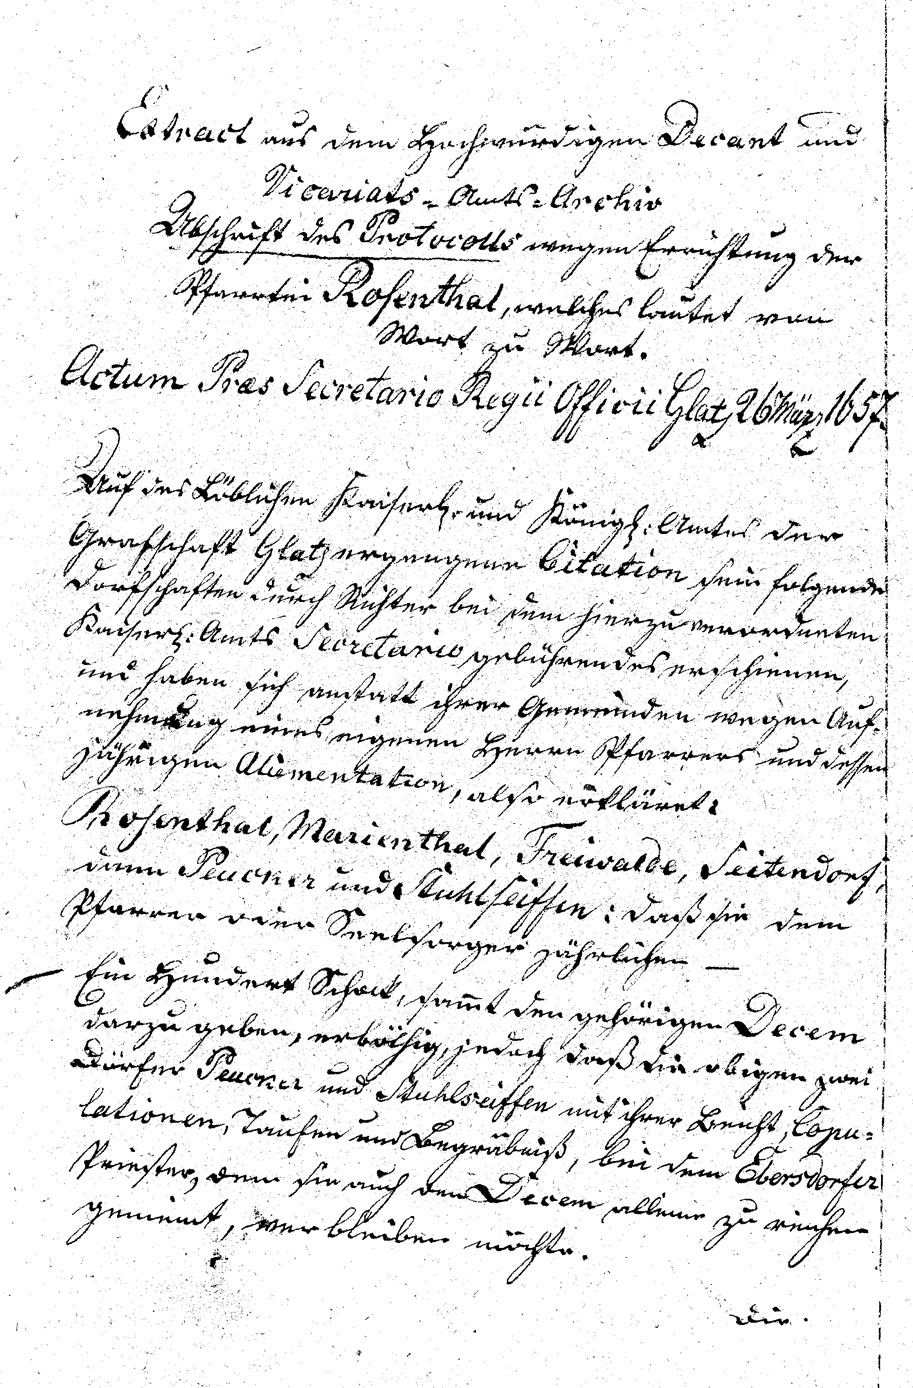 Extract aus dem Hochwürdigen Decant und
Vicariats-Amts-Archiv
Abschrift des Protocolls wegen Errichtung der
Pfarrtei Rosenthal, welches lautet von
Wort zu Wort.
Actum Præs Secretario Regii Officii Glatz 26 März 1657.
Auf des Löblichen Kaiserl. und Königl: Amtes der
Grafschaft Glatz ergangene Citation sein folgende
Dorfschaften durch Richter bei dem hierzu verordneten
Kaiserl: Amts Secretario gebührendes erschienen,
und haben sich anstatt ihrer Gemeinden wegen Auf-
nehmung eines eigenen Herrn Pfarrers und dessen
jährigen Alimentation, also erkläret:
Rosenthal, Marienthal, Freiwalde, Seitendorf,
dann Peucker und Stuhlseiffen: daß sie dem
Pfarrer oder Seelsorger jährlichen —
Ein Hundert Schock, sammt den gehörigen Decem
darzu geben, erböthig, jedoch daß die obigen zwei
Dörfer Peucker und Stuhlseiffen mit ihrer Beicht, Copu-
lationen, Taufen und Begräbniß, bei dem Ebersdorfer
Priester, dem sie auch den Decem alleine zu reichen
gemeint, verbleiben möchte.
Die